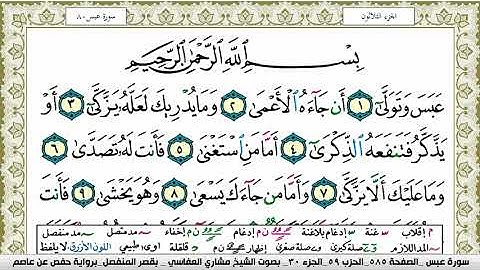 الجزء الثلاثون
سورة عبس - ٨٠
بِسْمِ اللَّهِ الرَّحْمَٰنِ الرَّحِيمِ
عَبَسَ وَتَوَلَّىٰ ١ أَن جَاءَهُ الْأَعْمَىٰ ٢ وَمَا يُدْرِيكَ لَعَلَّهُ يَزَّكَّىٰ ٣ أَوْ
يَذَّكَّرُ فَتَنفَعَهُ الذِّكْرَىٰ ٤ أَمَّا مَنِ اسْتَغْنَىٰ ٥ فَأَنتَ لَهُ تَصَدَّىٰ ٦
وَمَا عَلَيْكَ أَلَّا يَزَّكَّىٰ ٧ وَأَمَّا مَن جَاءَكَ يَسْعَىٰ ٨ وَهُوَ يَخْشَىٰ ٩ فَأَنتَ
م إقلاب غنة إدغام بلاغنة إدغام ن م إخفاء مد متصل مد منفصل
المد اللازم صلة كبرى وصلة صغرى إظهار ن م قلقلة اوى طبيعي اللون الأزرق لا يلفظ
سورة عبس _الصفحة ٥٨٥ _الحزب ٥٩ _الجزء ٣٠ _ بصوت الشيخ مشاري العفاسي _ بقصر المنفصل _برواية حفص عن عاصم